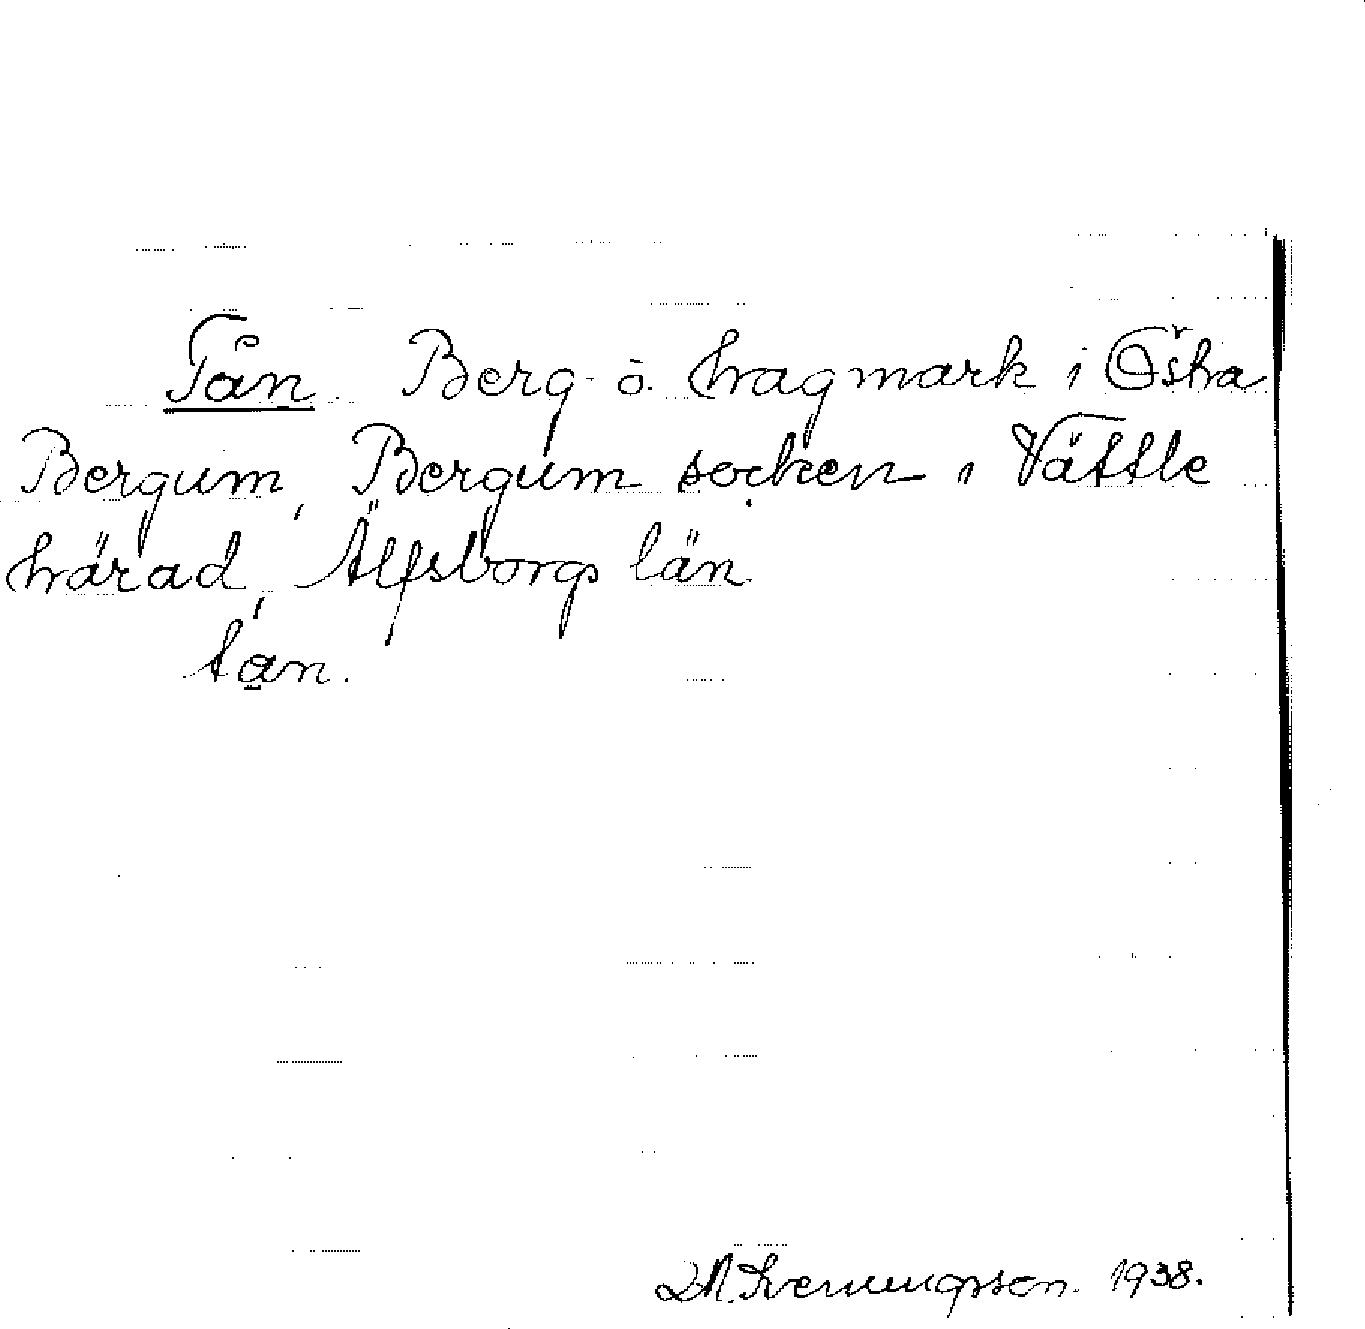 Tån. Berg- o. hagmark i Östra
Bergum, Bergum socken i Vättle
härad, Älfsborgs län
tan.
1938.